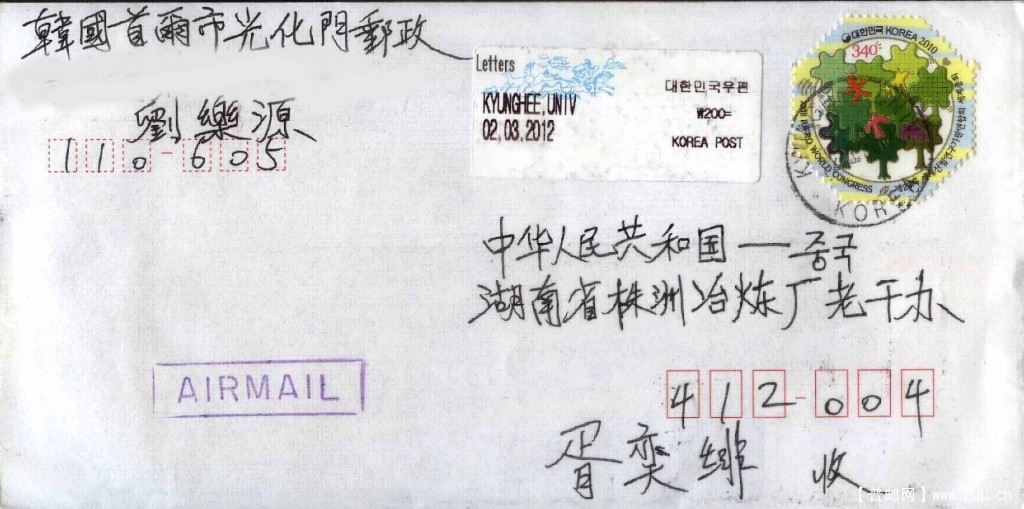 韓國首爾市光化門郵政
劉樂源
110-605
Letters
KYUNGHEE,UNIV
02,03,2012
대한민국우편
₩200=
KOREA POST
대한민국 KOREA 2010
340
WORLD CONGRESS
KOR
中华人民共和国一중국
湖南省株洲冶炼厂老干办
412-004
胥奕绯 收
AIRMAIL
【普邮网】www.